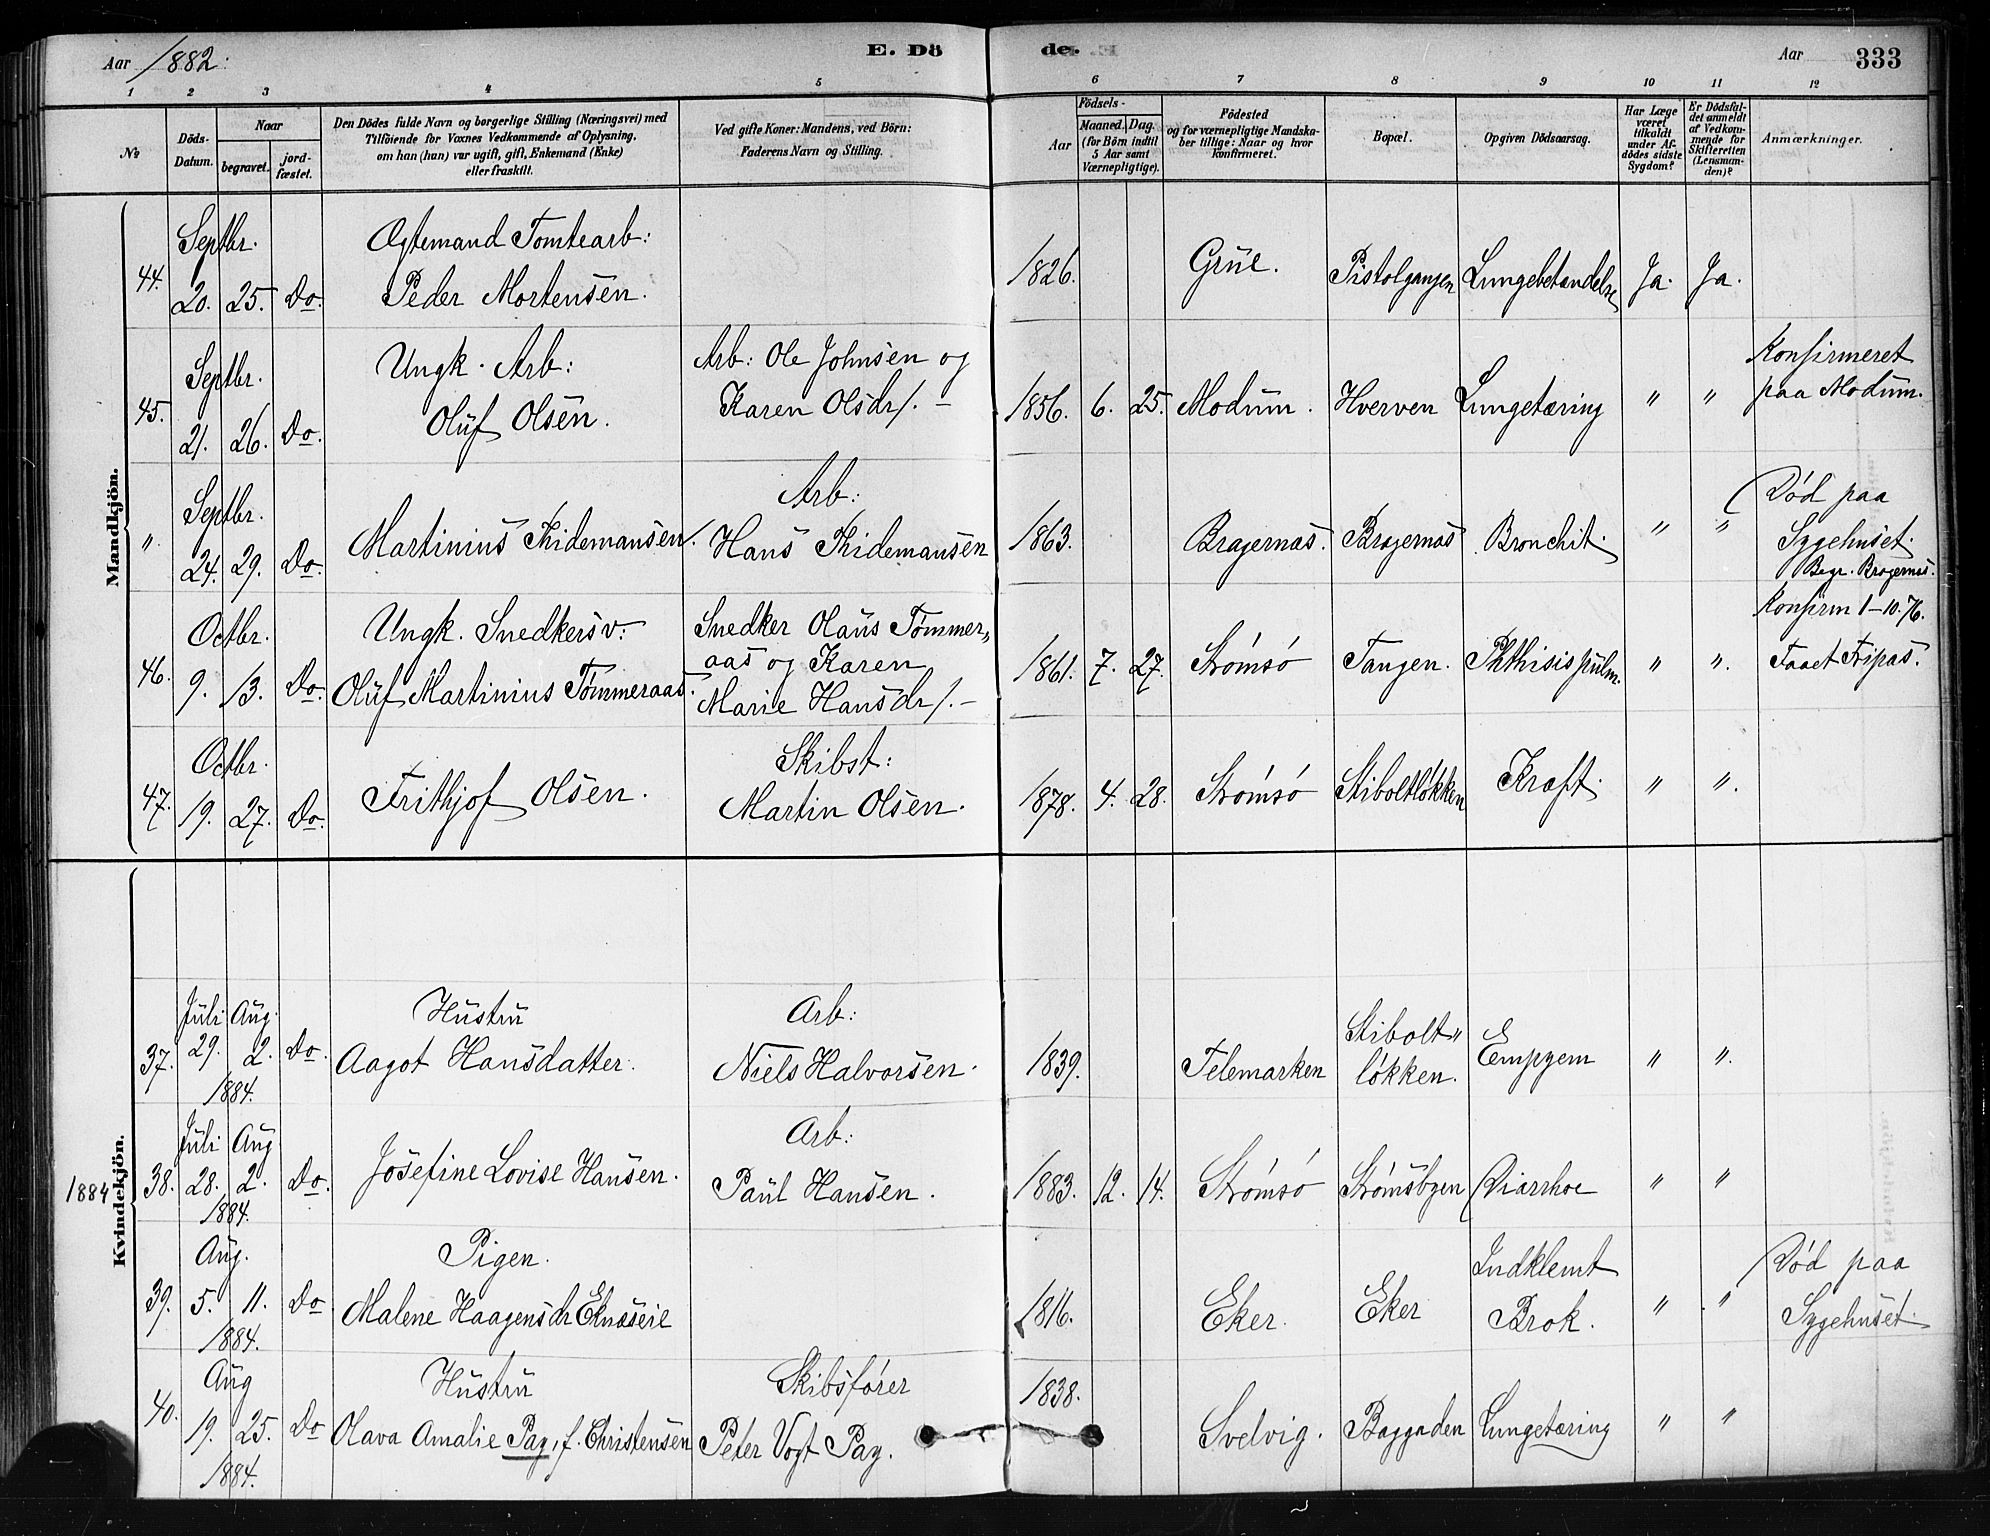 Aar 1882. E. Döde. Aar 333
1 2 3 4 5 6 7 8 9 10 11 12
No Döds-Datum. Naar begravet. jordfæstet. Den Dödes fulde Navn og borgerlige Stilling (Næringsvei) med Tilföiende for Voxnes Vedkommende af Oplysning, om han (hun) var ugift, gift, Enkemand (Enke) eller fraskilt. Ved gifte Koner: Mandens, ved Börn: Faderens Navn og Stilling. Födsels- Aar Maaned. Dag. (for Börn indtil 5 Aar samt Værnepligtige). Födested og for værnepligtige Mandskaber tillige: Naar og hvor Konfirmeret. Bopæl. Opgiven Dödsaarsag. Har Læge været tilkaldt under Afdödes sidste Sygdom? Er Dödsfaldet anmeldt af Vedkommende for Skifteretten (Lensmanden)? Anmærkninger.
Mandkjön.
Septbr. Ægtemand Tomtearb:
44. 20. 25. Do. Peder Mortensen. 1826. Grue. Pistolgangen Lungebetændelse Ja. Ja.
Septbr. Ungk. Arb: Arb: Ole Johnsen og Konfirmeret
45. 21. 26. Do. Oluf Olsen. Karen Olsdr /. – 1856. 6. 25. Modum. Hverven Lungetæring " " paa Modum.
Septbr. Arb: Død paa
" 24. 29. Do. Martinius Thidemansen. Hans Thidemansen 1863. Bragernæs. Bragernæs Bronchit. " " Sygehuset.
Begr. Bragernæs.
Octbr. Ungk. Snedkersv: Snedker Olaus Tømmer„ Konfirm 1–10.76.
46. 9. 13. Do. Oluf Martinius Tømmeraas. aas og Karen 1861. 7. 27. Strømsø Tangen. Phthisis pulm. " ". Faaet Fripas.
Marie Hansdr /. –
Octbr. Skibst:
47. 19. 27. Do. Frithjof Olsen. Martin Olsen. 1878. 4. 28. Strømsø Stiboltløkken Kræft. " ".
1884 Kvindekjön.
Juli Aug. Hustru Arb: Stibolt„
37. 29. 2. Do. Aagot Hansdatter. Niels Halvorsen. 1839. Telemarken løkken. Empyem " ".
1884.
Juli Aug Arb:
38. 28. 2. Do. Josefine Lovise Hansen. Paul Hansen. 1883. 12. 14. Strømsø Strømsbyen Diarrhoe " "
1884.
Aug. Pigen. Indklemt Død paa
39. 5. 11. Do Malene Haagensdr Eknæseie 1816. Eker. Eker Brok. " " Sygehuset.
1884.
Aug Hustru Skibsfører 1838.
40. 19. 25. Do Olava Amalie Pay, f. Christensen Peter Vogt Pay. Svelvig. Baggaden Lungetæring " "
1884.